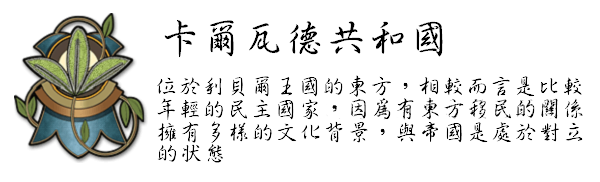 卡爾瓦德共和國
位於利貝爾王國的東方，相較而言是比較
年輕的民主國家，因為有東方移民的關係
擁有多樣的文化背景，與帝國是處於對立
的狀態